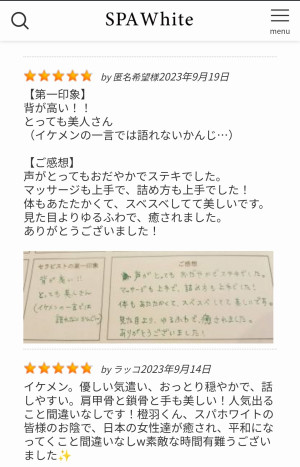 SPA White
menu
by 匿名希望様2023年9月19日
【第一印象】
背が高い！！
とっても美人さん
（イケメンの一言では語れないかんじ…）
【ご感想】
声がとってもおだやかでステキでした。
マッサージも上手で、詰め方も上手でした！
体もあたたかくて、スベスベしてて美しいです。
見た目よりゆるふわで、癒されました。
ありがとうございました！
セラピストの第一印象
背が高い!!
とっても美人さん
(イケメンの一言では
語れないかんじ…)
ご感想
声がとってもおだやかでステキでした。
マッサージも上手で、詰め方も上手でした!
体もあたたかくて、スベスベしてて美しいです。
見た目よりゆるふわで、癒されました。
ありがとうございました!
by ラッコ2023年9月14日
イケメン。優しい気遣い、おっとり穏やかで、話
しやすい。肩甲骨と鎖骨と手も美しい！人気出る
こと間違いなしです！橙羽くん、スパホワイトの
皆様のお陰で、日本の女性達が癒され、平和にな
ってくこと間違いなしw素敵な時間有難うござい
ました✨